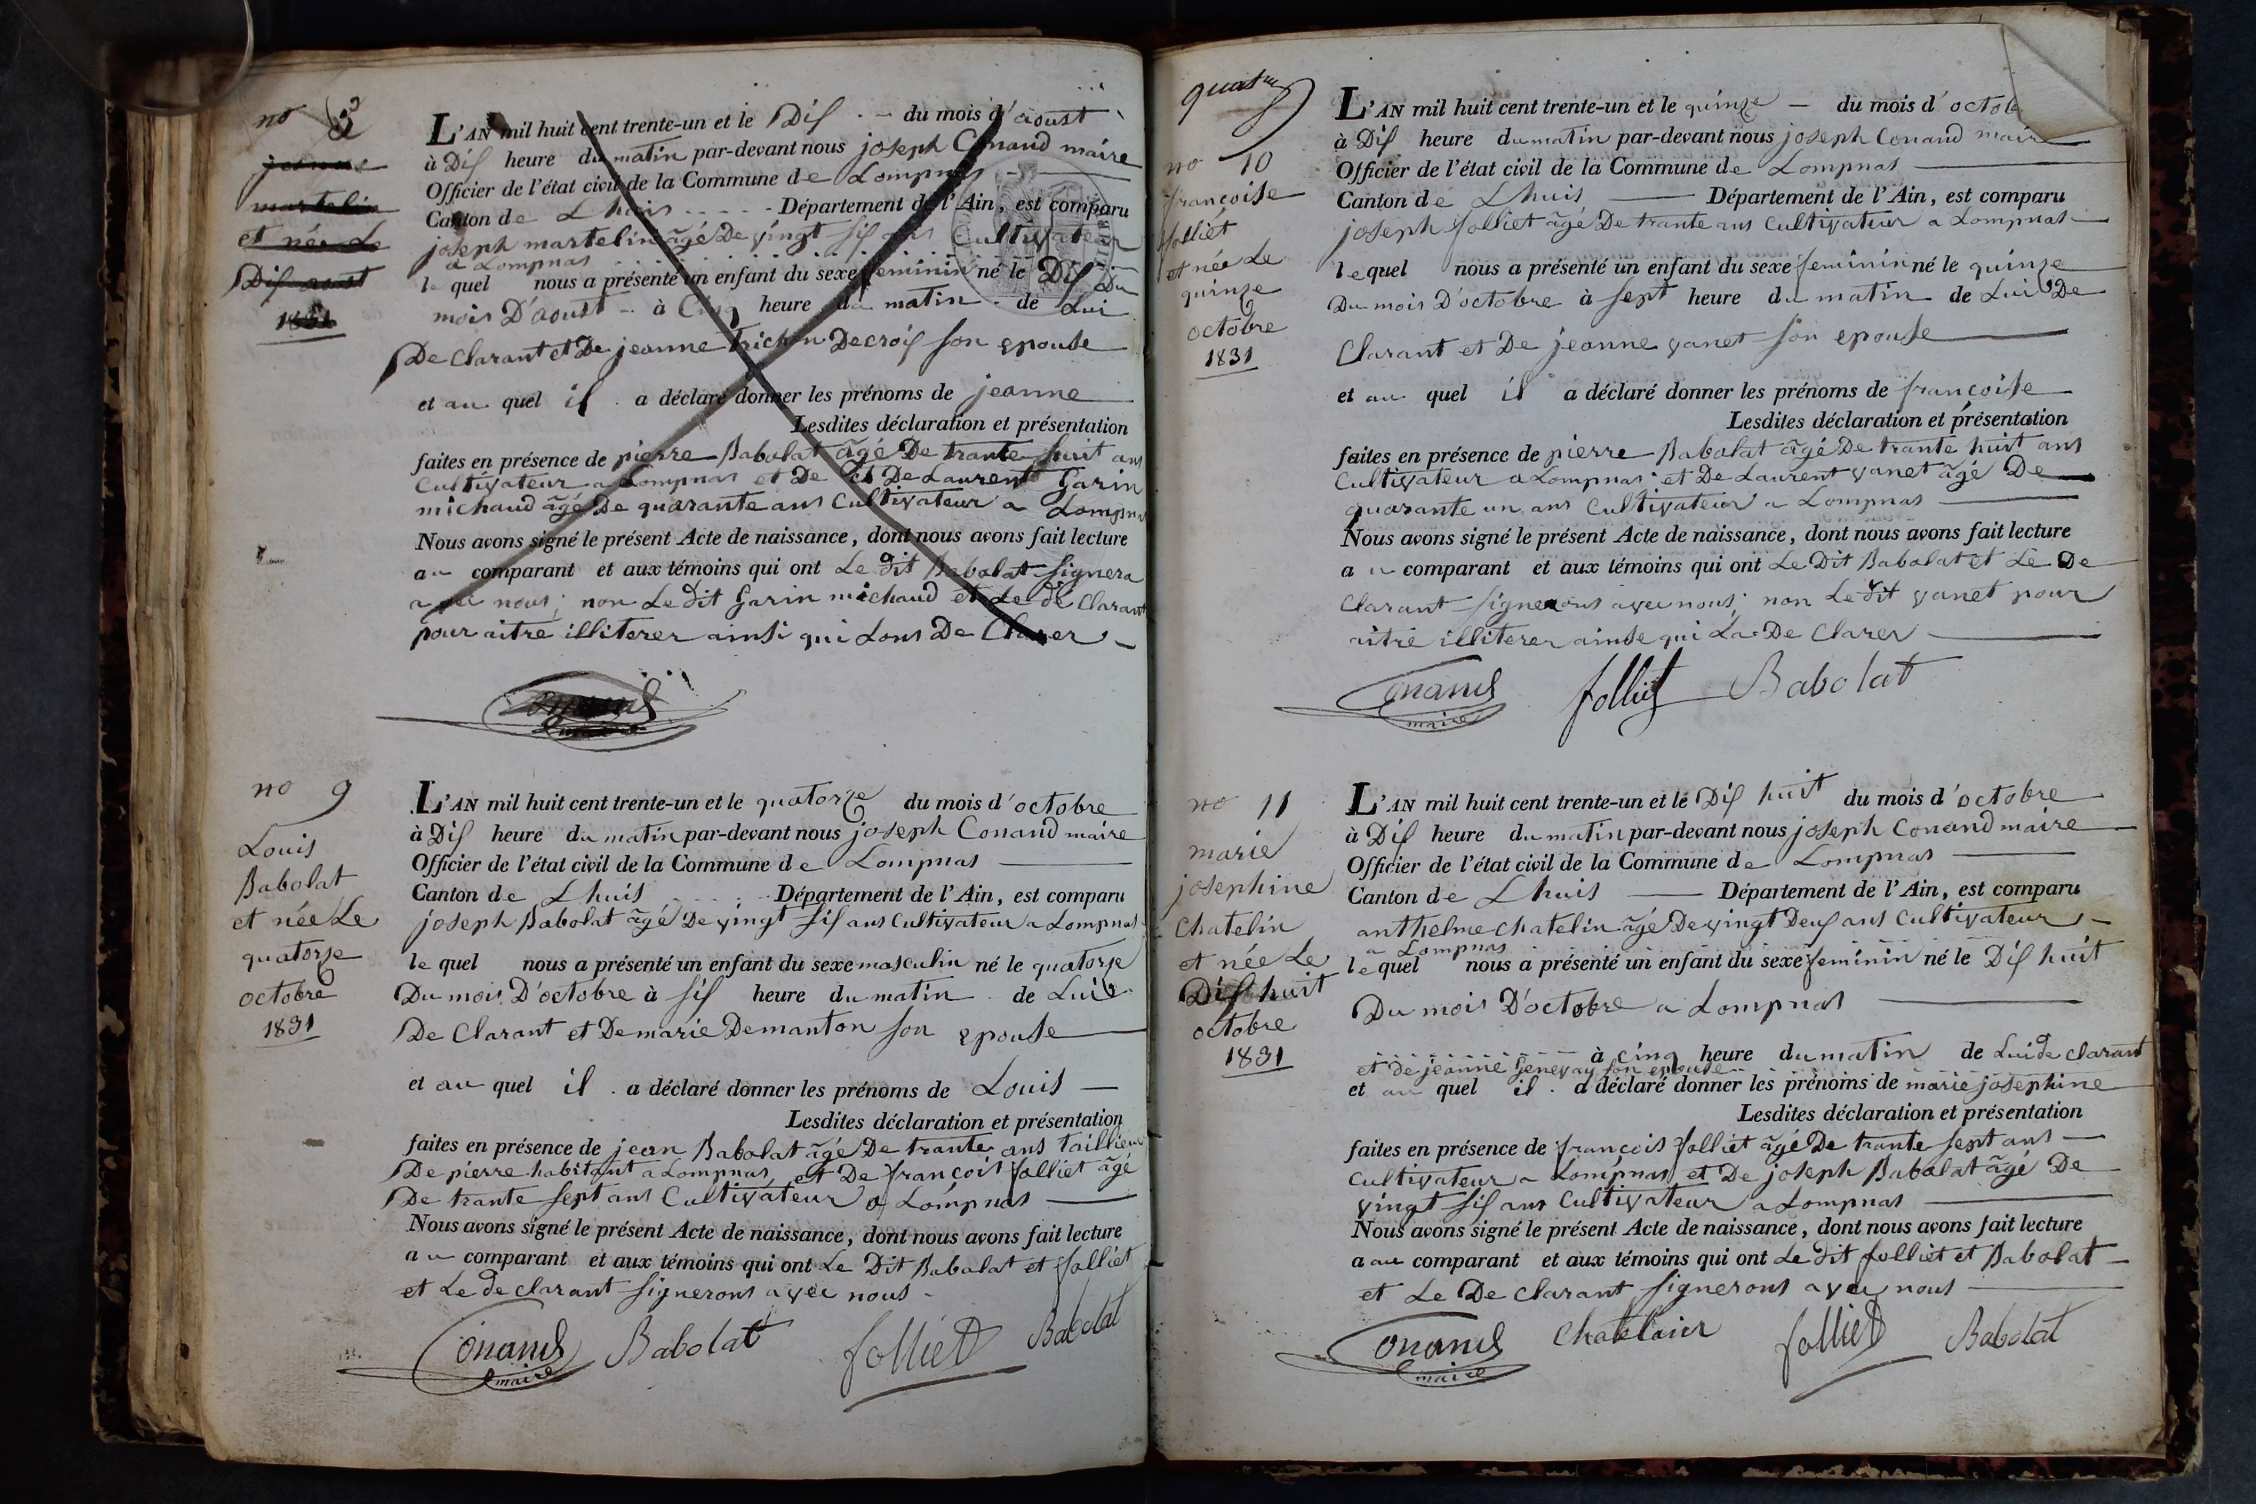 no 8
jeanne
martelin
et née Le
Dix aoust
1831
L'AN mil huit cent trente-un et le Dix du mois d'aoust
à Dix heure du matin par-devant nous joseph Conand maire
Officier de l'état civil de la Commune de Lompnas
Canton de Lhuis Département de l'Ain, est comparu
joseph martelin âgé De vingt six ans Cultivateur
a Lompnas
le quel nous a présenté un enfant du sexe feminin né le Dix Du
mois D'aoust à Cinq heure du matin de Lui
De Clarant et De jeanne trichon Decroix son epouse
et au quel il a déclaré donner les prénoms de jeanne
Lesdites déclaration et présentation
faites en présence de pierre Babolat âgé De trante huit ans
Cultivateur a Lompnas et De et De Laurent Garin
michaud âgé De quarante ans Cultivateur a Lompnas
Nous avons signé le présent Acte de naissance, dont nous avons fait lecture
au comparant et aux témoins qui ont Le dit Babolat signera
avec nous; non Le dit Garin michaud et Le de Clarant
pour aitre illiterer ainsi qui Lons De Clarer
Conand
maire
no 9
Louis
Babolat
et née Le
quatorze
octobre
1831
L'AN mil huit cent trente-un et le quatorze du mois d'octobre
à Dix heure du matin par-devant nous joseph Conand maire
Officier de l'état civil de la Commune de Lompnas
Canton de Lhuis Département de l'Ain, est comparu
joseph Babolat âgé De vingt six ans Cultivateur a Lompnas
le quel nous a présenté un enfant du sexe masculin né le quatorze
Du mois D'octobre à six heure du matin de Lui
De Clarant et De marie Demanton son epouse
et au quel il a déclaré donner les prénoms de Louis
Lesdites déclaration et présentation
faites en présence de jean Babolat âgé De trante ans taillieur
De pierre habitant a Lompnas et De françois folliet âgé
De trante sept ans Cultivateur a Lompnas
Nous avons signé le présent Acte de naissance, dont nous avons fait lecture
au comparant et aux témoins qui ont Le Dit Babolat et folliet
et Le de clarant signerons avec nous
Conand Babolat folliet Babolat
maire
quatre
no 10
françoise
folliet
et née Le
quinze
octobre
1831
L'AN mil huit cent trente-un et le quinze du mois d'octob
à Dix heure du matin par-devant nous joseph Conand maire
Officier de l'état civil de la Commune de Lompnas
Canton de Lhuis Département de l'Ain, est comparu
joseph folliet âgé De trante ans Cultivateur a Lompnas
le quel nous a présenté un enfant du sexe feminin né le quinze
Du mois D'octobre à sept heure du matin de Lui De
Clarant et De jeanne vanet son epouse
et au quel il a déclaré donner les prénoms de françoise
Lesdites déclaration et présentation
faites en présence de pierre Babolat âgé De trante huit ans
Cultivateur a Lompnas et De Laurent vanet âgé De
quarante un ans Cultivateur a Lompnas
Nous avons signé le présent Acte de naissance, dont nous avons fait lecture
au comparant et aux témoins qui ont Le Dit Babolat et Le De
Clarant signerons avec nous; non Le dit vanet pour
aitre illiterer ainse qui La De Clarer
Conand folliet Babolat
maire
no 11
marie
josephine
Chatelin
et née Le
Dix huit
octobre
1831
L'AN mil huit cent trente-un et le Dix huit du mois d'octobre
à Dix heure du matin par-devant nous joseph Conand maire
Officier de l'état civil de la Commune de Lompnas
Canton de Lhuis Département de l'Ain, est comparu
anthelme chatelin âgé De vingt Deux ans Cultivateur
a Lompnas
le quel nous a présenté un enfant du sexe feminin né le Dix huit
Du mois D'octobre a Lompnas
à cinq heure du matin de Lui de clarant
et de jeanne Genevay son epouse
et au quel il a déclaré donner les prénoms de marie josephine
Lesdites déclaration et présentation
faites en présence de françois folliet âgé De trante sept ans
Cultivateur a Lompnas et De joseph Babolat âgé De
vingt six ans Cultivateur a Lompnas
Nous avons signé le présent Acte de naissance, dont nous avons fait lecture
a au comparant et aux témoins qui ont Le dit folliet et Babolat
et Le De clarant signerons avec nous
Conand Chatelain folliet Babolat
maire